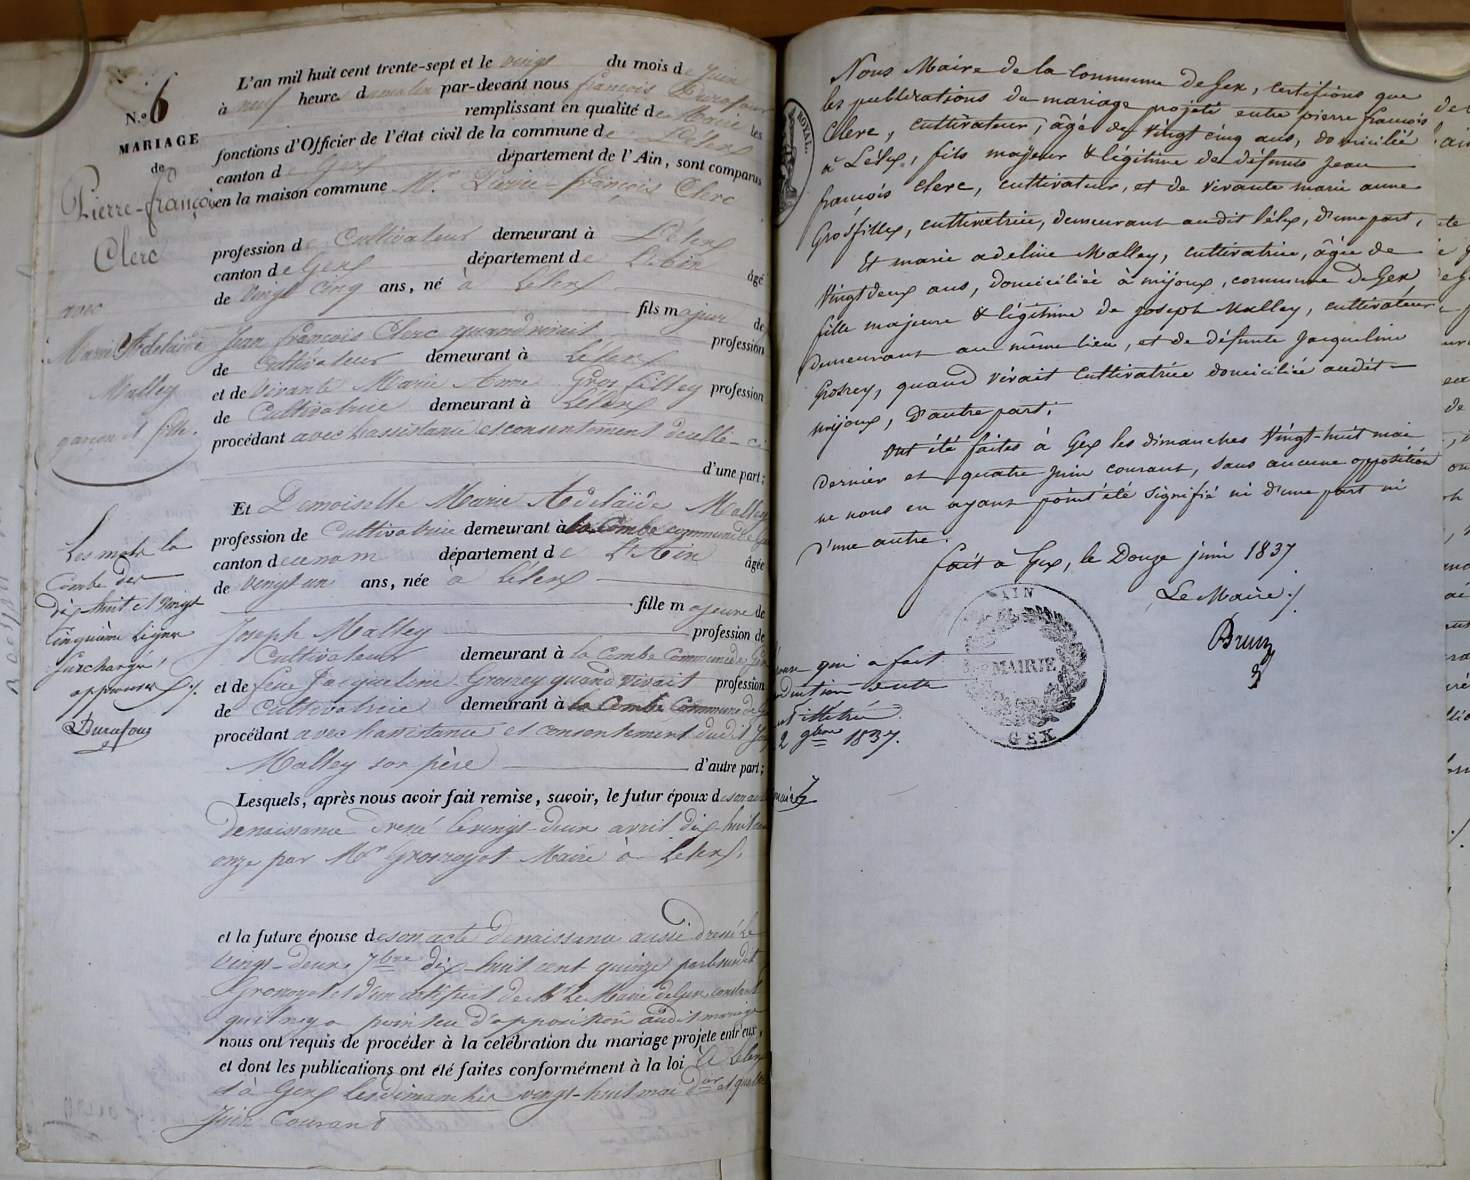 N.º 6
MARIAGE
de
Pierre-françois
Clerc
avec
Marie Adelaïde
Malley
garçon et fille.
L'an mil huit cent trente-sept et le vingt du mois de Juin
à neuf heures du matin par-devant nous françois Durafour
remplissant en qualité de Maire les
fonctions d'Officier de l'état civil de la commune de Lélex
canton de Gex département de l'Ain, sont comparus
en la maison commune Mr Pierre-françois Clerc
profession de Cultivateur demeurant à Lélex
canton de Gex département de L'Ain âgé
de vingt cinq ans, né à Lélex
fils majeur de
Jean françois Clerc quand vivait profession
de Cultivateur demeurant à Lélex
et de vivante Marie Anne Gros filley profession
de Cultivatrice demeurant à Lélex
procédant avec l'assistance et consentement de celle-ci
d'une part;
Et Demoiselle Marie Adelaïde Malley
profession de Cultivatrice demeurant à la Combe commune de Gex
canton de ce nom département de L'Ain âgée
de vingt un ans, née à Lélex
fille majeure de
Joseph Malley profession de
Cultivateur demeurant à la Combe Commune de Gex
et de feue Jacqueline Grosrey quand vivait profession
de Cultivatrice demeurant à la Combe Commune de
procédant avec l'assistance et consentement dudit
Malley son père d'autre part;
Les mots la
Combe des
dix huit et vingt
cinquième lignes
surchargé,
approuvés
Durafour
Lesquels, après nous avoir fait remise, savoir, le futur époux de son acte
de naissance dressé le vingt-deux avril dix-huit cent
onze par Mr Grosroyat Maire à Lélex,
et la future épouse de son acte de naissance aussi dressé le
vingt-deux 7bre dix-huit cent quinze par le susdit
Grosroyat et d'un certificat de Mr Le Maire de Gex constant
qu'il n'y a point eu d'opposition audit mariage
nous ont requis de procéder à la célébration du mariage projeté entr'eux,
et dont les publications ont été faites conformément à la loi à Lélex
et à Gex les dimanches vingt-huit mai der et quatre
Juin Courant
ROYAL.
Nous Maire de la Commune de Gex, certifions que
les publications du mariage projeté entre pierre françois
Clerc, cultivateur, âgé de vingt cinq ans, domicilié
à Lélex, fils majeur & légitime de défunts Jean
françois Clerc, cultivateur, et de vivante marie anne
Grosfilley, cultivatrice, demeurant audit Lélex, d'une part,
Et marie adeline Malley, cultivatrice, âgée de
vingt deux ans, domiciliée à mijoux, commune de Gex
fille majeure & légitime de Joseph Malley, cultivateur
demeurant au même lieu, et de défunte Jacqueline
Grosrey, quand vivait cultivatrice domiciliée audit
mijoux, d'autre part;
Ont été faites à Gex les dimanches vingt-huit mai
dernier et quatre juin courant, sans aucune opposition
ne nous en ayant point été signifié ni d'une part ni
d'une autre.
fait à Gex, le Douze juin 1837
Le Maire
Brun
AIN
MAIRIE
GEX
qui a fait
illettré
2 9bre 1837.